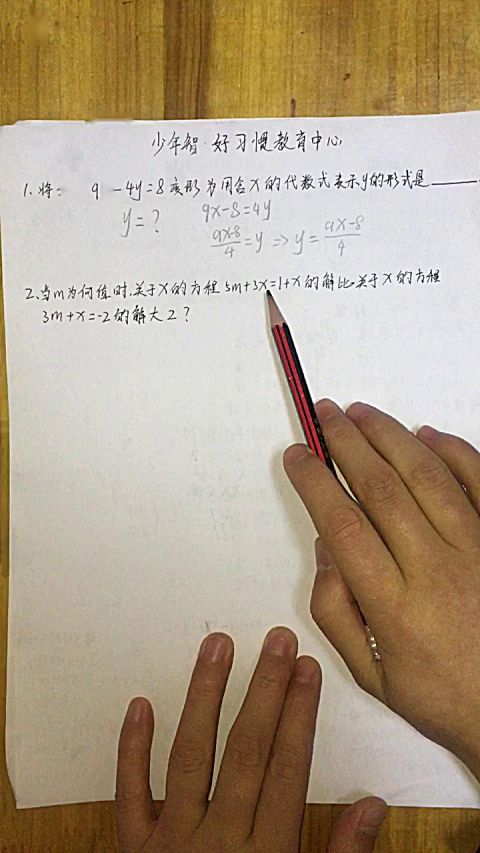 少年智·好习惯教育中心
1.将: 9 -4y=8变形为用含x的代数式表示y的形式是
y=? 9x-8=4y
9x-8/4=y⇒y=9x-8/4
2.当m为何值时,关于x的方程5m+3x=1+x的解比关于x的方程
3m+x=-2的解大2?